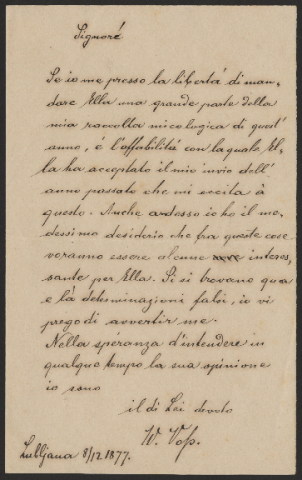 Signoré
Se io me presso la libertá di man-
dare Ella una grande parte della
mia raccolta micologica di quest'
anno, é l'affabilitá con la quale El-
la ha acceptato il mio invio dell'
anno passato che mi excita á
questo. Anche adesso io ho il me-
dessimo desiderio che fra queste cose
veranno essere alcune interes-
sante per Ella. Si si trovano qua
e lá determinazioni falsi, io vi
prego di avvertir me.
Nella speranza d'intendere in
qualque tempo la sua opinione
io sono
il di Lei devoto
W. Voſs.
Lubljana 8/12 1877.